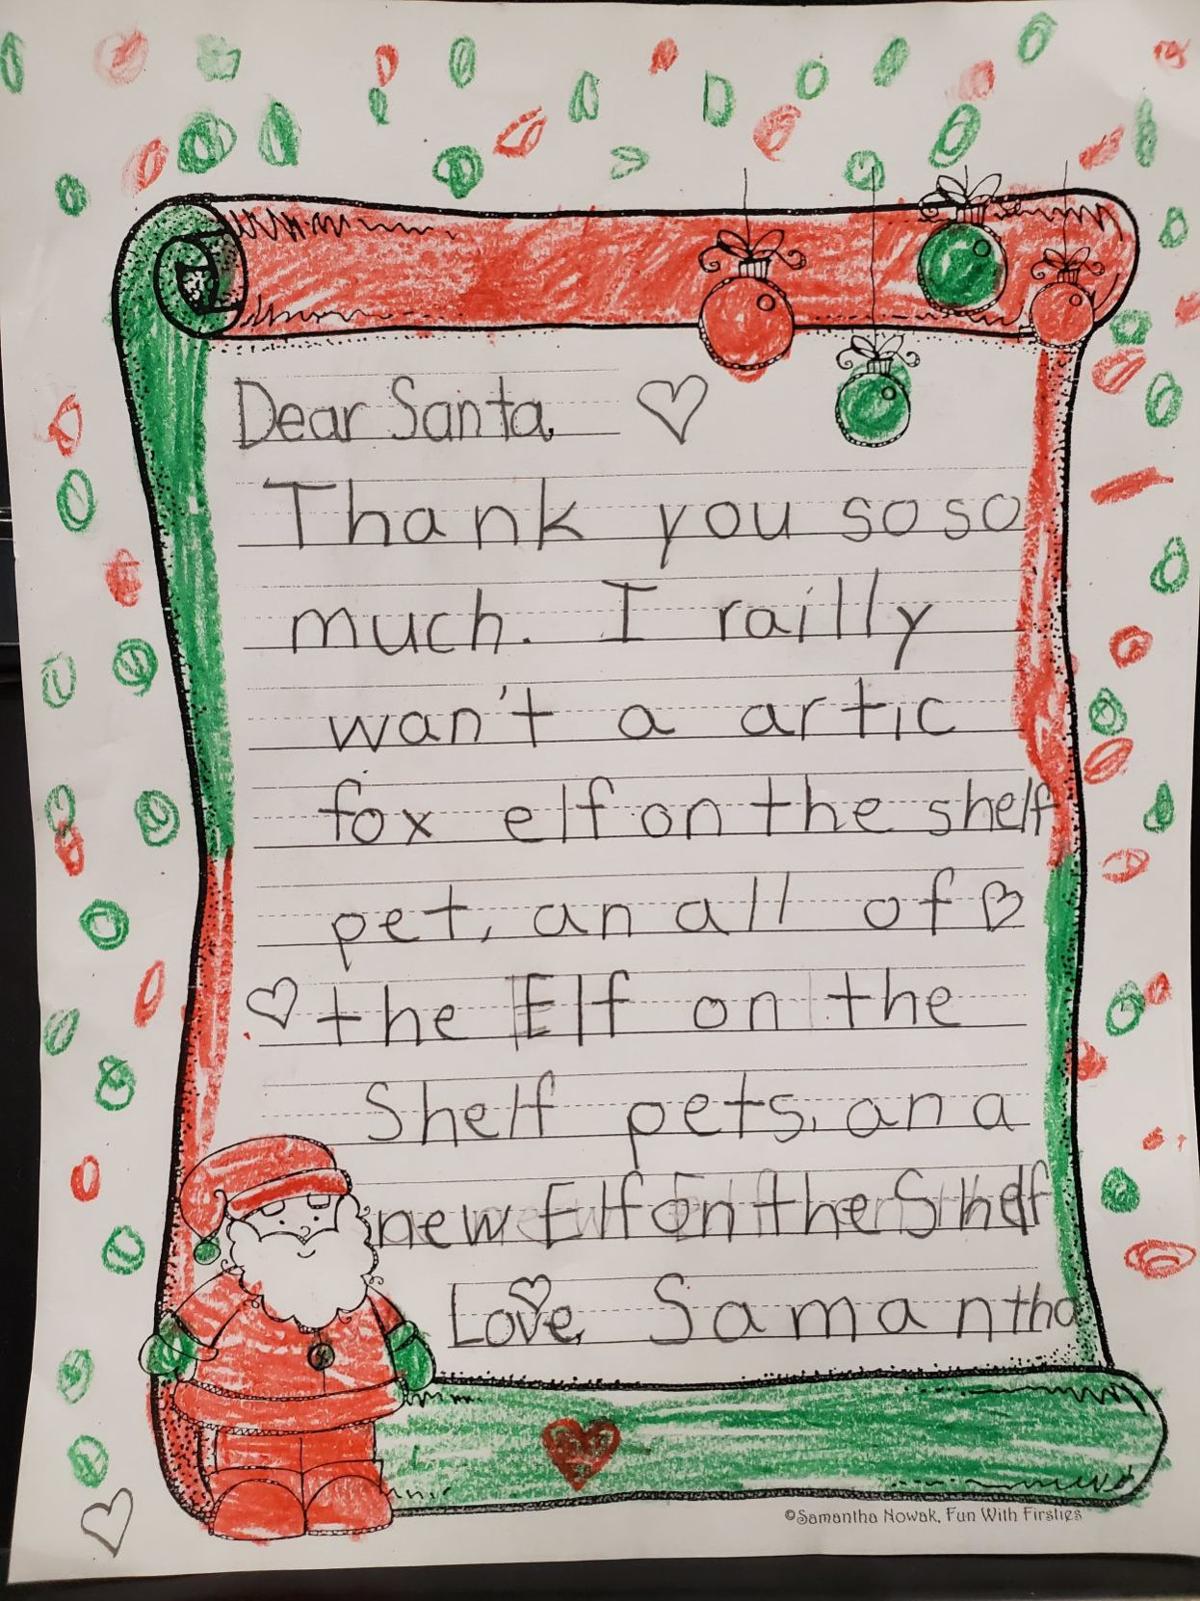 Dear Santa,
Thank you so so
much. I railly
wan't a artic
fox elf on the shelf
pet, an all of
the Elf on the
Shelf pets, an a
new Elf on the Shelf
Love, Samantha
©Samantha Nowak, Fun With Firsties